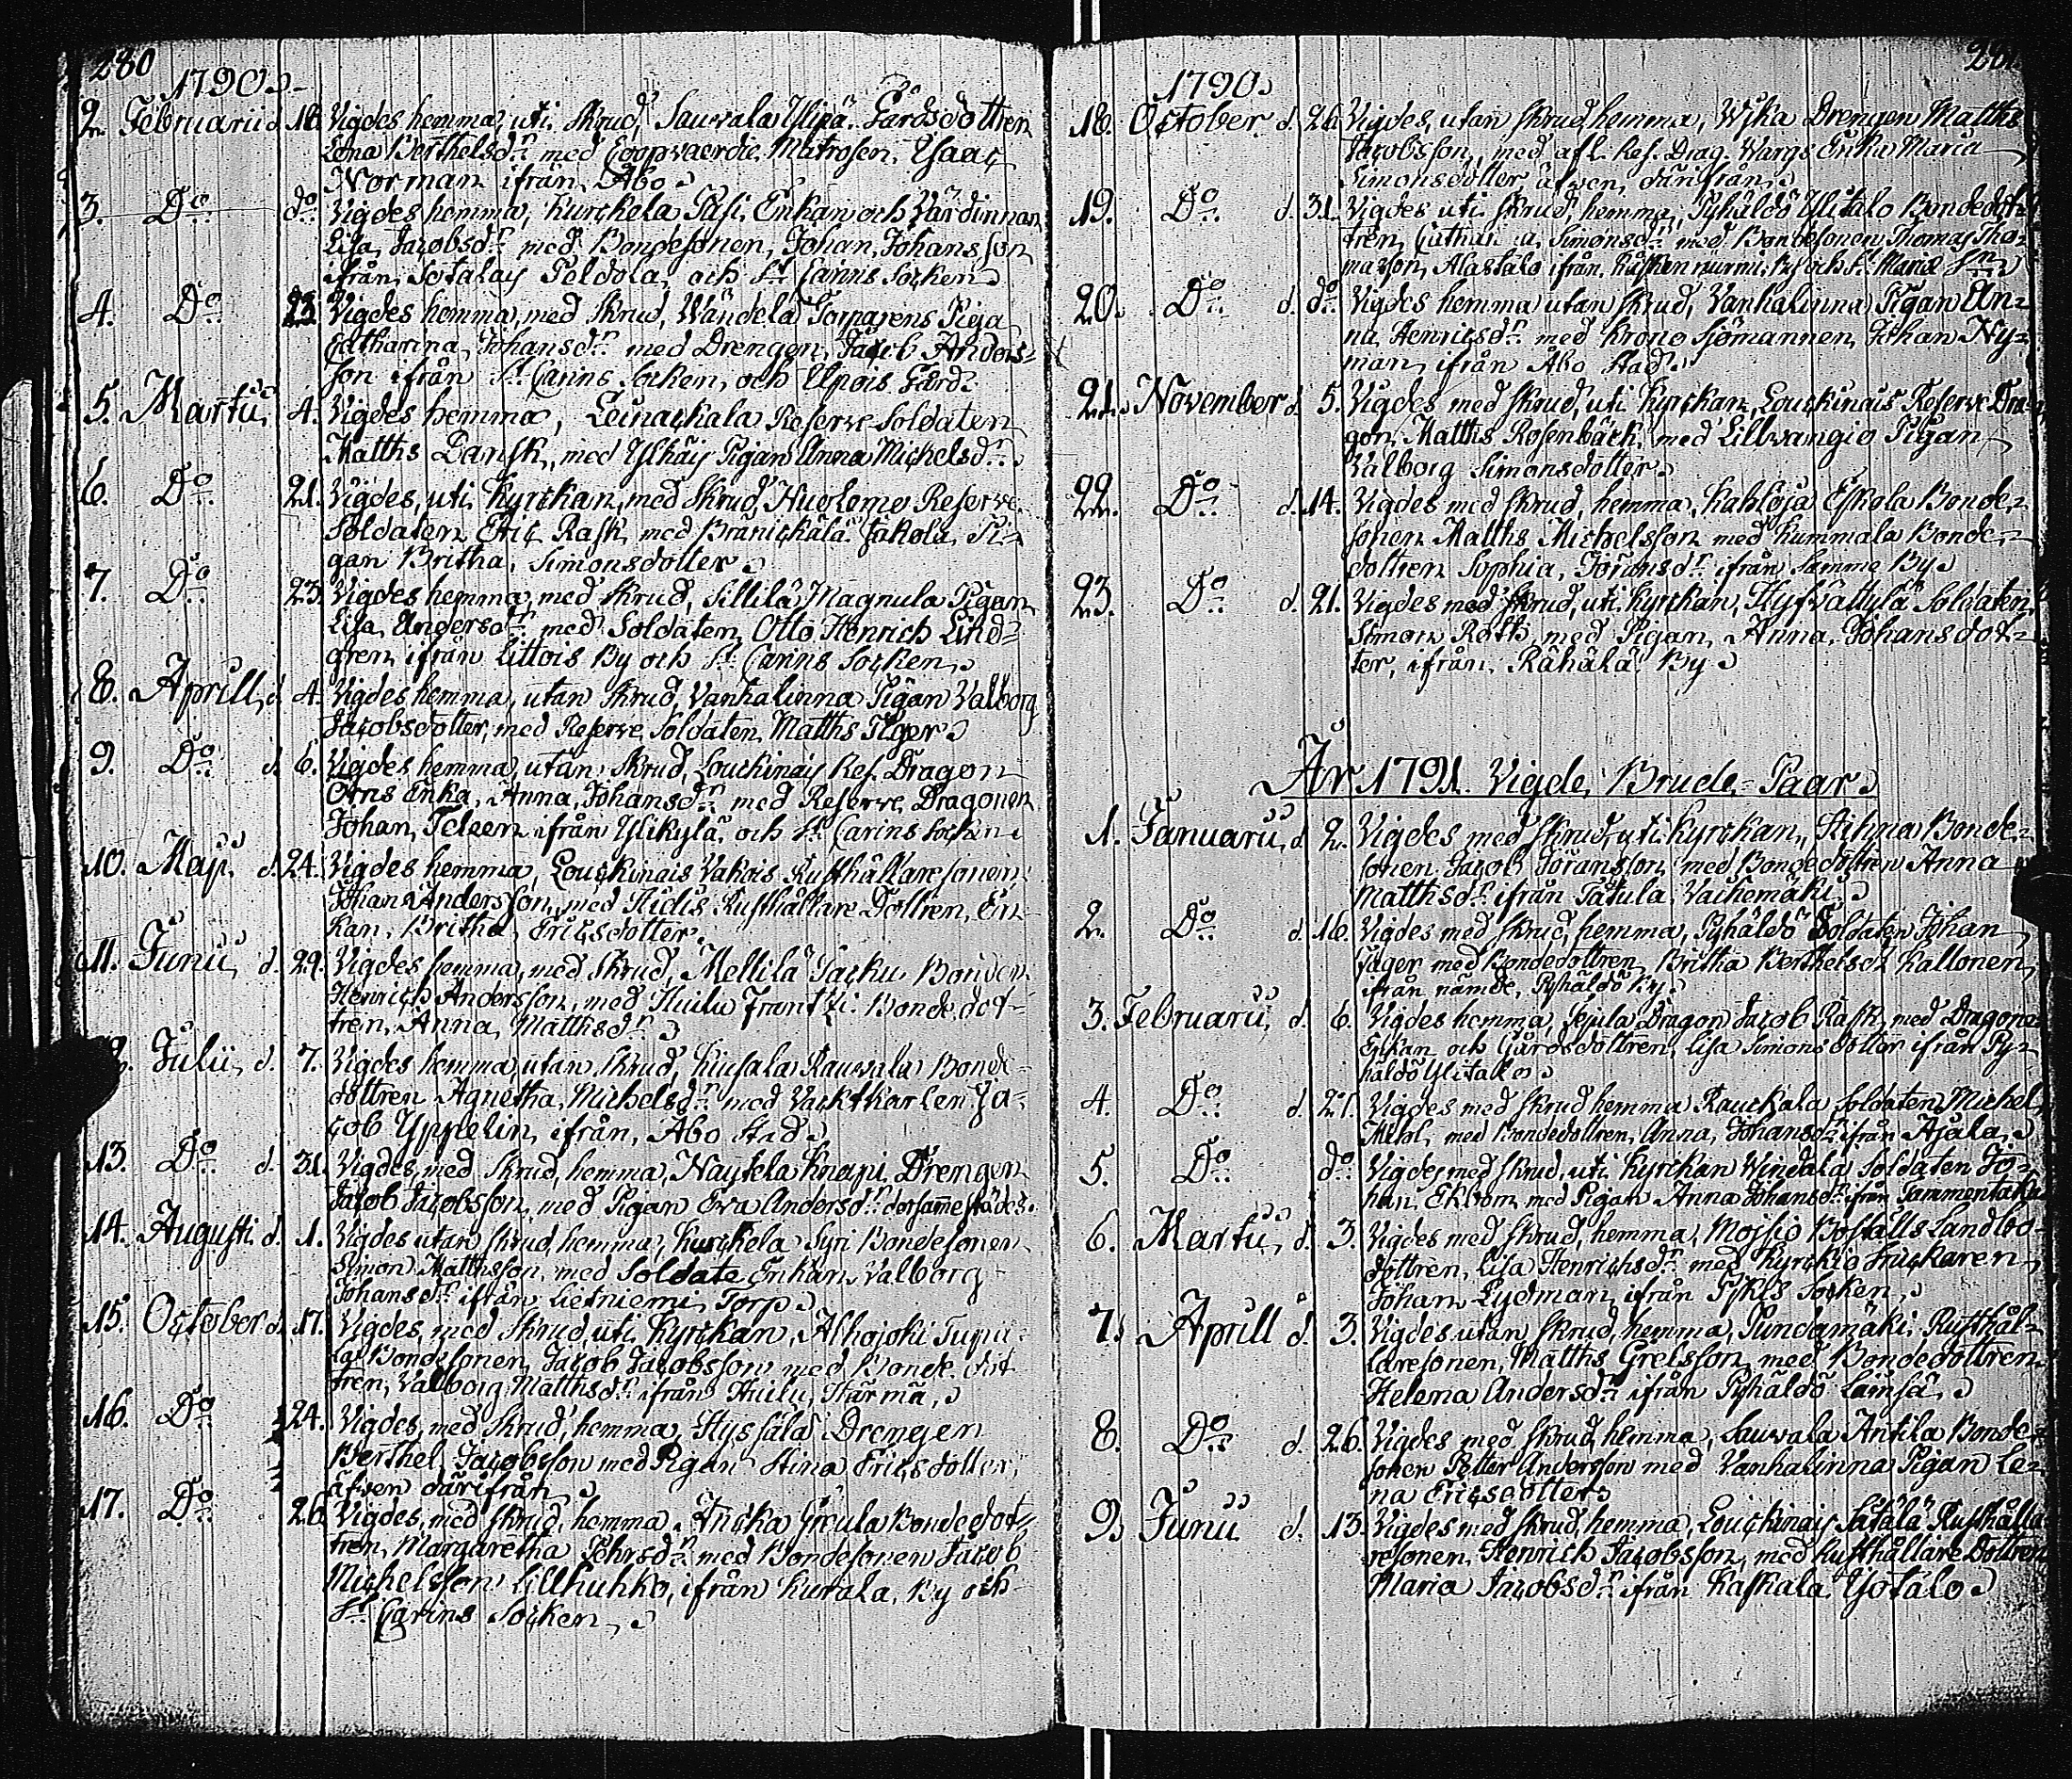 280
1790.
2. Februarii d. 18. Vigdes hemma, uti Skrud, Sauvala Ylipä Gårdsdottren
Lena Berthelsdr. med Coopvaerdie Matrosen, Isaac
Norman ifrån Åbo.
3. Do. do. Vigdes hemma, Kurckela Pasi Enkan och Värdinnan
Lisa Jacobsdr. med Bondesonen, Johan Johansson
ifrån Sotalais Peldola och St. Carins Socken.
4. Do. 23. Vigdes hemma, med Skrud, Wändelä Torparens Piga
Catharina Johansdr. med Drengen, Jacob Anders-
son ifrån St. Carins Socken, och Gård.
5. Martii 4. Vigdes hemma, Leinackala Reserve Soldaten
Matths Dansk, med Ylhäis Pigan Anna Michelsdr.
6. Do. 21. Vigdes, uti Kyrckan, med Skrud, Reserve
Soldaten Eric Rask, med Jakola Pi-
gan Britha, Simonsdotter.
7. Do. 23. Vigdes hemma, med Skrud, Sillilä Magnula Pigan
Lisa Andersdr. med Soldaten, Otto Henrich Lind-
gren, ifrån Littois By och St. Carins Socken.
8. Aprill, d. 4. Vigdes hemma, utan Skrud, Vanhalinna Pigan Valborg
Jacobsdotter, med Reserve Soldaten Matths Tiger.
9. Do. d. 6. Vigdes hemma, utan Skrud, Louckinais Res. Dragon
Örns Enka, Anna, Johansdr. med Reserve Dragonen
Johan, Teleen ifrån Ylikylä och St. Carins Socken.
10. Maji. d. 24. Vigdes hemma, Louckinais Vakois Rusthållaresonen
Johan Andersson, med Hidis Rusthållare Dottren, En-
kan, Britha Ericsdotter.
11. Junii, d. 29. Vigdes hemma, med Skrud, Mellilä Packu Bonden
Henrich Andersson, med Huilu Frantzi Bonde dot-
tren, Anna, Matthsdr.
Julii, d. 7. Vigdes hemma utan Skrud, Kiusala Rauvala Bonde
dottren Agnetha, Michelsdr. med Vacktkarlen Ja-
cob Yppelin, ifrån, Åbo Stad.
13. Do. d. 31. Vigdes, med Skrud, hemma, Nautela Knapi Drengen
Jacob Jacobsson, med Pigan Eva Andersdr. dersammestädes.
14. Augusti d. 1. Vigdes utan Skrud, hemma, Kurckela Syri Bondesonen
Simon Matthsson, med Soldate Enkan Valborg
Johansdr. ifrån Lietniemi Torp.
15. October d. 17. Vigdes, med Skrud, uti Kyrckan, Alhojoki Tupa-
la Bondesonen, Jacob Jacobsson, med Bonde dot
tren, Valborg Matthsdr. ifrån Huilu, Härmä,
16. Do. 24. Vigdes, med Skrud, hemma, Hyssälä Drengen
Berthel, Jacobsson med Pigan Stina Ericsdotter,
äfven därifrån.
17. Do. 26. Vigdes, med Skrud, hemma, Bondedot-
tren, Margaretha Pehrsdr. med Bondesonen Jacob
Michelsson Lillhuhko, ifrån Kurala, By och
St. Carins Socken,
1790.
18. October. d. 26. Vigdes, utan Skrud, hemma, Wjka Drengen Matths
Jacobsson, med afl. Res. Drag. Wargs Enka Maria
Simonsdotter äfven, därifrån.
19. Do. d. 31. Vigdes uti Skrud, hemma, Pyhäldö Ylitalo Bondedot-
tren, Simonsdr. med Bondesonen Thomas Tho-
masson, Alastalo ifrån. By och St. Mariæ
20. Do. d. do. Vigdes hemma utan Skrud, Vanhalinna Pigan An-
na, Henricsdr. med Krono Sjömannen, Johan Ny-
man, ifrån Åbo Stad.
21. November d. 5. Vigdes med Skrud, uti Kyrckan, Louckinais Reserve Dra-
gon, Matths Rosenbäck, med Lillvangio Pigan,
Valborg Simonsdotter.
22. Do. d. 14. Vigdes med Skrud, hemma, Kahloja Eskola Bonde-
sonen Matths Michelsson med Kummala Bonde-
dottren Sophia, Göransdr. ifrån Samma By.
23. Do. d. 21. Vigdes med Skrud, uti Kyrckan, Soldaten
Simon Roth, med Pigan, Anna, Johansdot-
ter, ifrån, Rähälä By.
År 1791. Vigde Brude-Paar.
1. Januarii, d. 2. Vigdes med Skrud, uti Kyrckan, Bonde-
sonen Jacob Göransson, med Bondedottren Anna
Matthsdr. ifrån Tatula, Vaihemäki.
2. Do. d. 16. Vigdes med Skrud, hemma, Pyhäldö Soldaten Johan
Jäger med Bondedottren, Britha Berthelsdr. Kallonen,
ifrån nämde, Pyhäldö By.
3. Februarii, d. 6. Vigdes hemma, Dragon Jacob Rask, med Dragone
Enkan och Gårdsdottren, Lisa Simonsdotter ifrån Py-
häldö Ylitalo.
4. Do. d. 27. Vigdes med Skrud hemma Rauckala Soldaten Michel
med Bondedottren, Anna, Johansdr. ifrån Äjälä.
5. Do. do. Vigdes med Skrud, uti Kyrckan Windala Soldaten Jo-
han, Ekbom, med Pigan Anna Johansdr. ifrån Tammentaka
6. Martii, d. 3. Vigdes med Skrud, hemma, Moisio Boställs Landbo-
dottren, Lisa Henrichsdr. med Kyrckio
Johan Lydman, ifrån Pjkis Socken,
7. Aprill d. 3. Vigdes utan Skrud, hemma, Pundamäki Rusthål-
laresonen, Matths Grelsson, med Bondedottren
Helena Andersdr. ifrån Pyhäldö Lämsä.
8. Do. d. 26. Vigdes med Skrud, hemma, Sauvala Antila Bonde-
sonen Petter Andersson med Vanhalinna Pigan Le-
na Ericsdotter.
9. Junii d. 13. Vigdes med Skrud, hemma, Louckinais Rusthålla
resonen, Henrich Jacobsson, med Rusthållare Dottren
Maria Jacobsdr. ifrån Kaskala, Ysotalo.